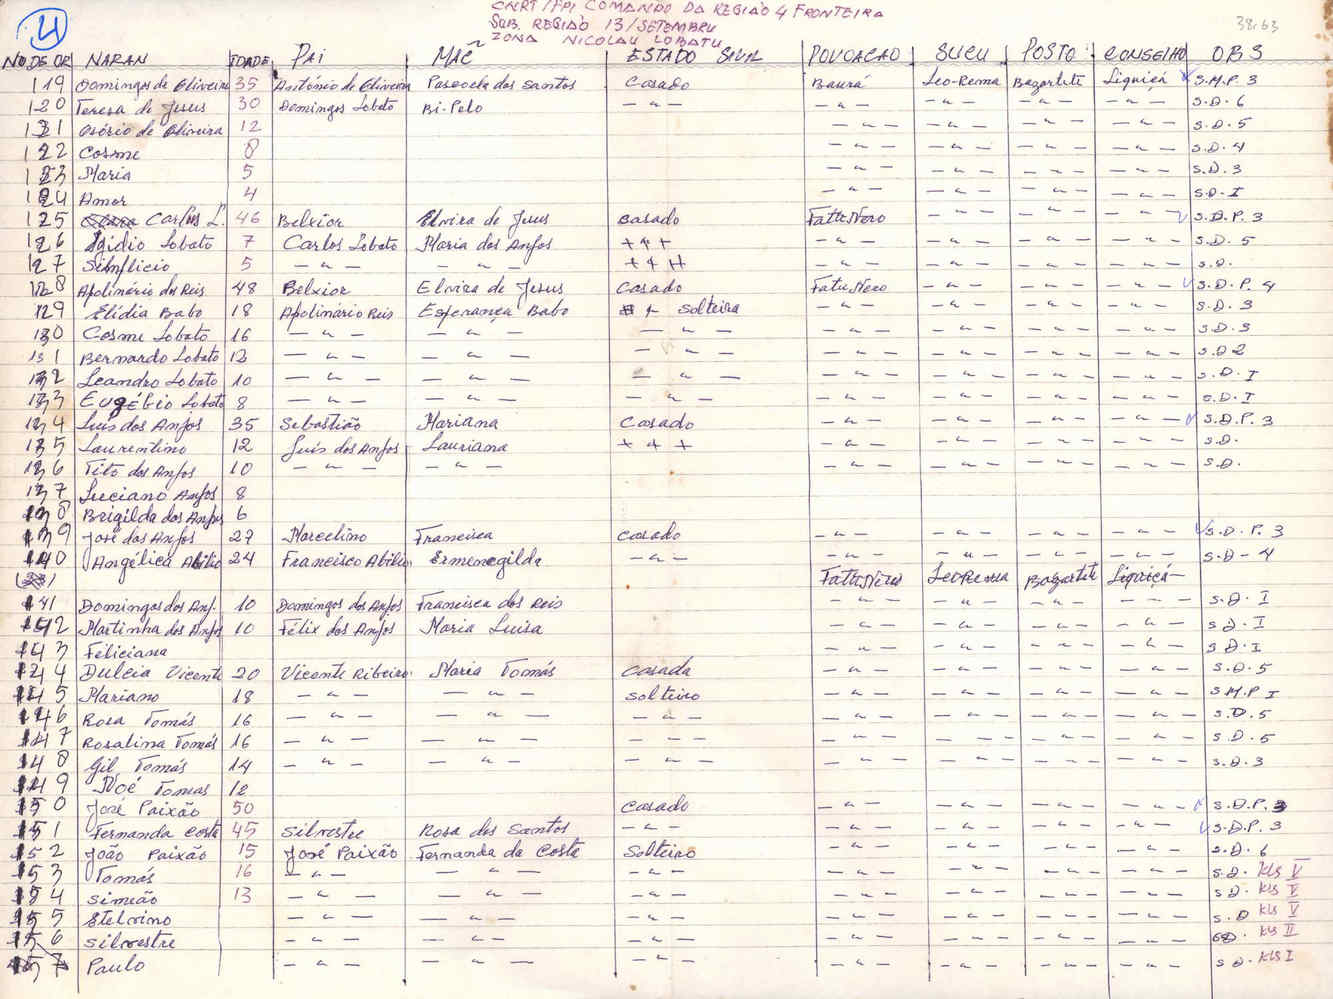 4
CNRT/FPI COMANDO DA REGIÃO 4 FRONTEIRA
SUB. REGIÃO 13/SETEMBRU
ZONA NICOLAU LOBATU
38.63
No DE OR NARAN IDADE PAI MÃE ESTADO SIVIL POVOACAO SUCU POSTO CONSELHO OBS
119 Domingos de Oliveira 35 António de Oliveira Pascoela dos Santos Casado Baurá Leo-Rema Bazartete Liquiçá S.M.P. 3
120 Teresa de Jesus 30 Domingos Lobato Bi-Pelo — " — — " — — " — — " — — " — S.D. 6
121 Osório de Oliveira 12 — " — — " — — " — — " — S.D. 5
122 Cosme 8 — " — — " — — " — — " — S.D. 4
123 Maria 5 — " — — " — — " — — " — S.D. 3
124 Amor 4 — " — — " — — " — — " — S.D. I
125 Carlos L. 46 Belxior Elvira de Jesus Casado Fatu Nero — " — — " — — " — S.D.P. 3
126 Igidio Lobato 7 Carlos Lobato Maria dos Anjos + + + — " — — " — — " — — " — S.D. 5
127 Simflicio 5 — " — — " — + + + — " — — " — — " — — " — S.D.
128 Apolinário dos Reis 48 Belxior Elvira de Jesus Casado Fatu Nero — " — — " — — " — S.D.P. 4
129 Elidia Babo 18 Apolinário Reis Esperança Babo Solteira — " — — " — — " — — " — S.D. 3
130 Cosme Lobato 16 — " — — " — — " — — " — — " — — " — — " — S.D. 3
131 Bernardo Lobato 12 — " — — " — — " — — " — — " — — " — — " — S.D 2
132 Leandro Lobato 10 — " — — " — — " — — " — — " — — " — — " — S.D. I
133 Eugébio Lobato 8 — " — — " — — " — — " — — " — — " — S.D. I
134 Luís dos Anjos 35 Sebastião Mariana Casado — " — — " — — " — — " — S.D.P. 3
135 Laurentino 12 Luís dos Anjos Lauriana + + + — " — — " — — " — — " — S.D.
136 Tito dos Anjos 10 — " — — " — — " — — " — — " — — " — S.D.
137 Luciano Anjos 8
138 Brigilda dos Anjos 6
139 José dos Anjos 27 Marcelino Francisca Casado — " — — " — — " — — " — S.D.P. 3
140 Angélica Abilio 24 Francisco Abilio Ermenegilda — " — — " — — " — — " — — " — S.D – 4
Fatu Neru Leorema Bazartete Liquiçá —
141 Domingos dos Anj. 10 Domingos dos Anjos Francisca dos Reis — " — — " — — " — — " — S.D. I
142 Martinha dos Anjos 10 Félix dos Anjos Maria Luisa — " — — " — — " — — " — S D. I
143 Feliciana — " — — " — — " — — " — S D. I
144 Dulcia Vicente 20 Vicente Ribeiro Maria Tomás Casada — " — — " — — " — — " — S.D. 5
145 Mariano 18 — " — — " — Solteiro — " — — " — — " — — " — S M.P I
146 Rosa Tomás 16 — " — — " — — " — — " — — " — — " — — " — S.D. 5
147 Rosalina Tomás 16 — " — — " — — — — — " — — " — — " — — " — S. D. 5
148 Gil Tomás 14 — " — — " — — " — — " — — " — — " — — " — S.D. 3
149 Noé Tomas 12
150 José Paixão 50 Casado — " — — " — — " — — " — S.D.P. 3
151 Fernanda Costa 45 Silvestre Rosa dos Santos — " — — " — — " — — " — — " — S.D.P. 3
152 João Paixão 15 José Paixão Fernanda da Costa Solteiro — " — — " — — " — — " — S.D. 6
153 Tomás 16 — " — — " — — " — — " — — " — — " — — " — S.D. Kls V
154 Simião 13 — " — — " — — " — — " — — " — — " — — " — S D. Kls V
155 Stelvino — " — — " — — " — — " — — " — — " — — " — S.D Kls V
156 Silvestre — " — — " — — " — — " — — " — — " — — " — SD. Kls II
157 Paulo — " — — " — — " — — " — — " — — " — — " — S D. Kls I